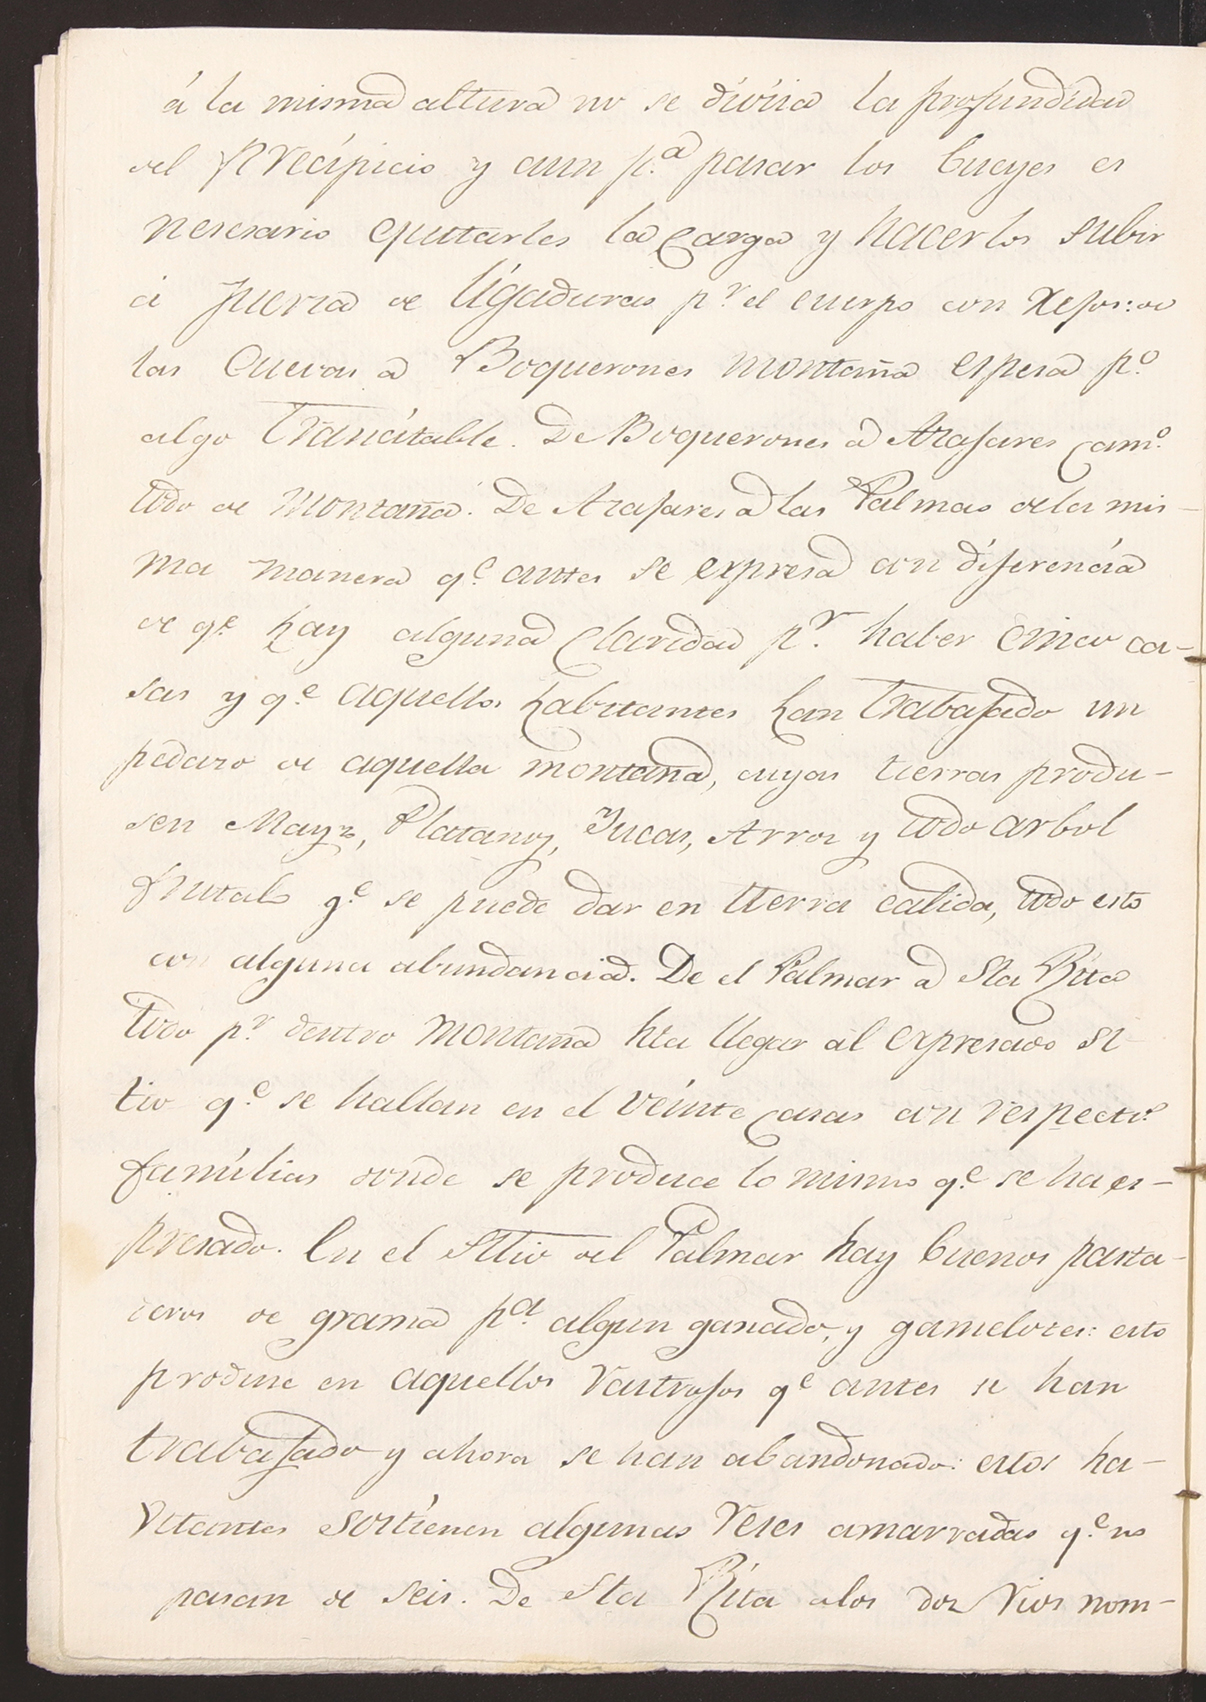 á la misma altura no se divisa la profundidad
del precipicio y aun p.a pasar los bueyes es
nesesario quitarles la carga y hacerlos subir
á fuersa de ligaduras p.r el cuerpo con rejos: de
las Cuevas a Boquerones montaña espesa p.o
algo trancitable. De Boquerones a Azafares cam.o
todo de montaña. De Azafares a las Palmas de la mis-
ma manera q.e antes se expresa con diferencia
de q.e hay alguna claridad p.r haber cinco ca-
sas y q.e aquellos habitantes han trabajado un
pedazo de aquella montaña, cuyas tierras produ-
sen Mayz, Platanos, Yucas, Arroz y todo arbol
frutal q.e se puede dar en tierra calida, todo esto
con alguna abundancia. De el Palmar a Sta Rita
todo p.r dentro montaña hta llegar al expresado si
tio q.e se hallan en el veinte casas con respectiv.s
familias donde se produce lo mismo q.e se ha es-
presado. En el Sitio del Palmar hay buenos pasta-
deros de grama p.a algun ganado, y gamelotes: esto
produse en aquellos rastrojos q.e antes se han
trabajado y ahora se han abandonado: estos ha-
vitantes sostienen algunas reses amarradas q.e no
pasan de seis. De Sta Rita a los dos rios nom-